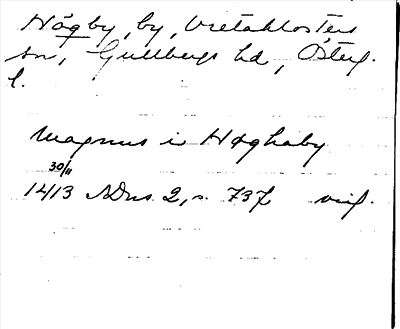 Högby, by, Vretaklosters
sn, Gullbergs hd, Österg.
l.
Magnus i Høghaby
30/11
1413 SDns 2, s. 737 orig.